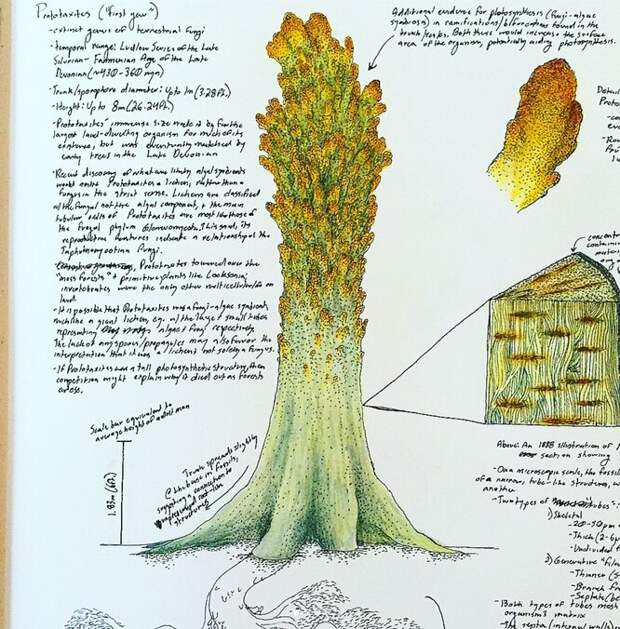 Prototaxites ("First yew")
-extinct genus of terrestrial fungi
-temporal range: Ludlow Series of the Late
Silurian - Famennian Age of the Late
Devonian (~430-360 mya)
-Trunk/sporophore diameter: Up to 1m (3.28ft.)
-Height: Up to 8m (26.24ft.)
-Prototaxites' immense size made it by far the
largest land-dwelling organism for much of its
existence, but was eventually matched by
early trees in the Late Devonian
-Recent discovery of what are likely algal symbionts
would make Prototaxites a lichen, rather than a
fungus in the strict sense. Lichens are classified
w/the fungal not the algal component, & the main
tubular cells of Prototaxites are most like those of
the fungal phylum Glomeromycota. This said, its
reproductive features indicate a relationship of the
Taphrinomycotina fungi.
Prototaxites towered over the
"moss forests" & primitive plants like Cooksonia;
invertebrates were the only other multicellular life on
land.
-It is possible that Prototaxites was a fungi-algae symbiosis
much like a giant lichen, e.g. w/the large & small tubes
representing algae & fungi respectively.
The lack of any spores/propagules may also favor the
interpretation that it was a lichen & not solely a fungus.
-If Prototaxites was a tall photosynthetic structure, then
competition might explain why it died out as forests
arose.
Additional evidence for photosynthesis (fungi-algae
symbiosis) is ramifications/bifurcations found in the
trunk/stalks. Both these would increase the surface
area of the organism, potentially aiding photosynthesis.
Scale bar equivalent to
average height of adult man
1.83m (6ft.)
Trunk spreads slightly
@ the base in fossils,
suggesting a connection to
underground root-like
structures
Above: An 1888 illustration of
section showing
-On a microscopic scale, the fossils
of a narrow, tube-like structures, w
another
-Two types of "tubes":
1) Skeletal
-20-50 µm
-Thick (2-6 µ
-Undivided
2) Generative "fil
-Thinner (5
-Branch fr
-Septate (be
-Both types of tubes mesh
organism's matrix
-The septa (internal walls)